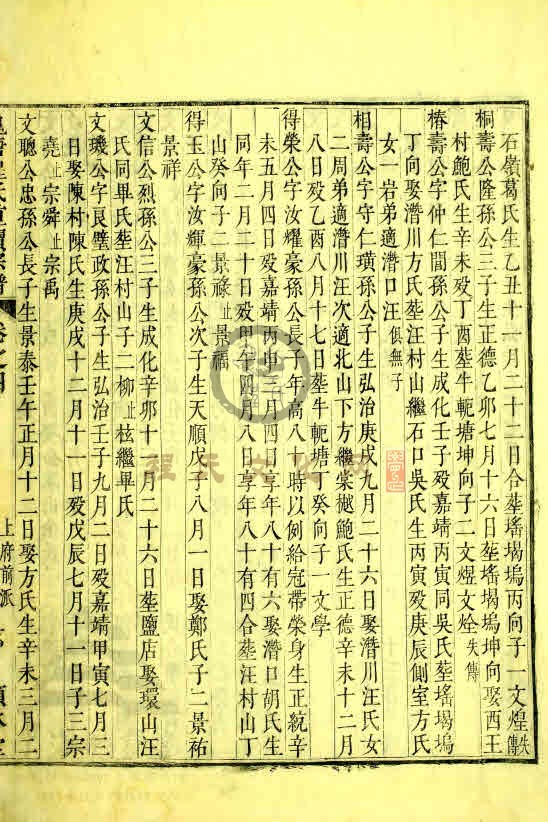 石嶺葛氏生乙丑十一月二十二日合塟瑤堨塢丙向子一文煌失傳
桐壽公隆孫公三子生正德乙卯七月十六日塟瑤堨塢坤向娶西王
村鮑氏生辛未殁丁酉塟牛軛塘坤向子二文煜文烇失傳
椿壽公字仲仁閏孫公子生成化壬子殁嘉靖丙寅同吳氏塟瑤堨塢
丁向娶潛川方氏塟汪村山繼石口吳氏生丙寅殁庚辰側室方氏
女一岩弟適潛口汪俱無子
相壽公字守仁璜孫公子生弘治庚戌九月二十六日娶潛川汪氏女
二周弟適潛川汪次適北山下方繼棠樾鮑氏生正德辛未十二月
八日殁乙酉八月十七日塟牛軛塘丁癸向子一文學
得榮公字汝耀豪孫公長子年高八十時以例給冠帶榮身生正統辛
未五月四日殁嘉靖丙申三月四日享年八十有六娶潛口胡氏生
同年二月二十日殁甲午四月八日享年八十有四合塟汪村山丁
山癸向子二景祿止景福
得玉公字汝輝豪孫公次子生天順戊子八月一日娶鄭氏子二景祐
景祥
文信公烈孫公三子生成化辛卯十一月二十六日塟鹽店娶環山汪
氏同畢氏塟汪村山子二柳止柭繼畢氏
文璣公字良璧政孫公子生弘治壬子九月二日殁嘉靖甲寅七月三
日娶陳村陳氏生庚戌十二月十一日殁戊辰七月十一日子三宗
堯止宗舜止宗禹
文聰公忠孫公長子生景泰壬午正月十二日娶方氏生辛未三月二
程氏 宗譜 卷之四 上府前派
程氏文化網